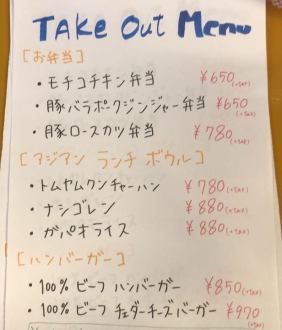 TAKE Out Menu
[お弁当]
・モチコチキン弁当 ¥650(+TAX)
・豚バラポークジンジャー弁当 ¥650(+TAX)
・豚ロースカツ弁当 ¥780(+TAX)
[アジアン ランチ ボウル]
・トムヤムクンチャーハン ¥780(+TAX)
・ナシゴレン ¥880(+TAX)
・ガパオライス ¥880(+TAX)
[ハンバーガー]
・100% ビーフ ハンバーガー ¥850(+TAX)
・100% ビーフ チェダーチーズバーガー ¥970(+TAX)